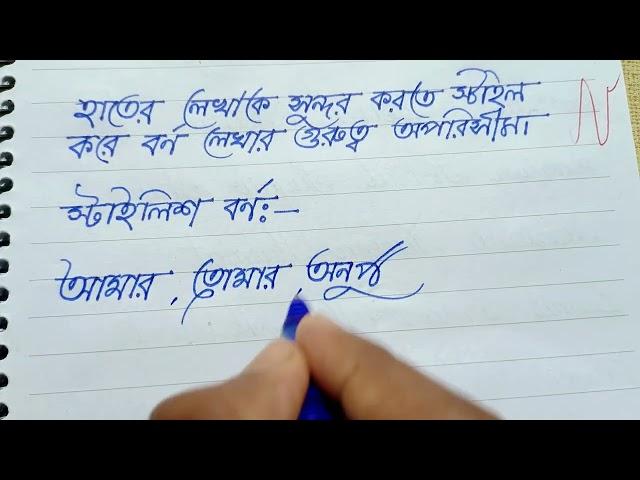 হাতের লেখাকে সুন্দর করতে স্টাইল
করে বর্ন লেখার গুরুত্ব অপরিসীম।
স্টাইলিশ বর্ন:-
আমার, তোমার, অনুর্ধ